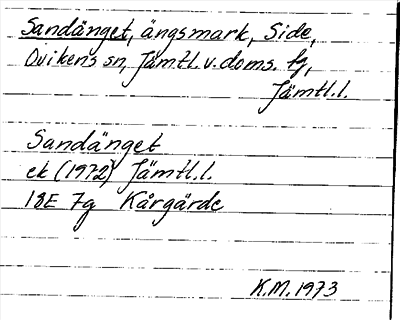 Sandänget, ängsmark, Side,
Ovikens sn, Jämtl. v. doms. fg,
Jämtl.l.
Sandänget
ek (1972) Jämtl.l.
18E 7g Kårgärde
K.M. 1973